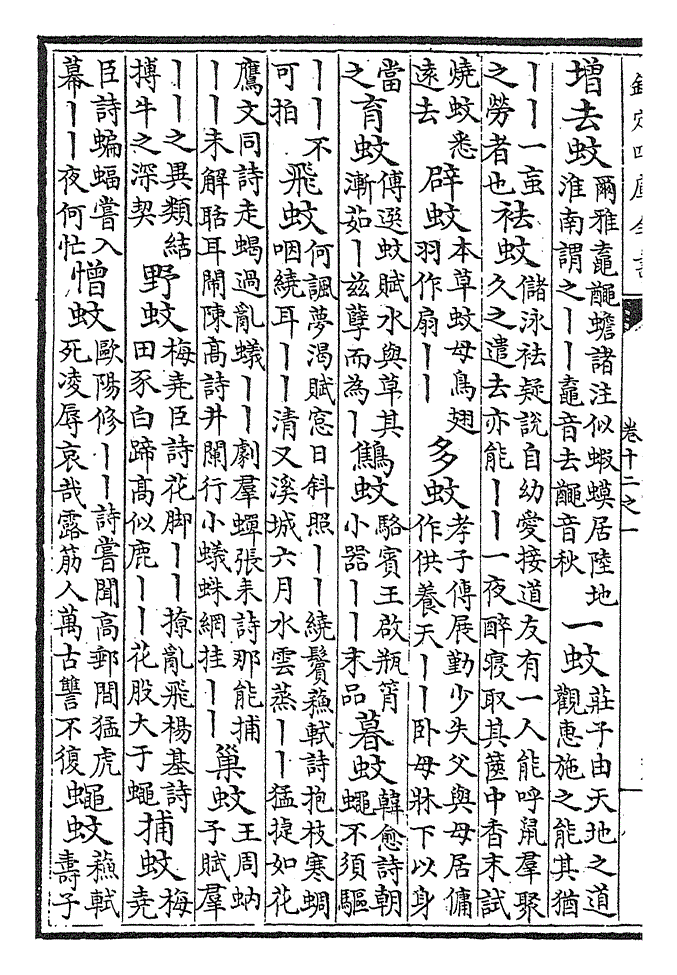 欽定四庫全書 卷十二之一
增去蚊 爾雅鼁𪓰蟾諸注似蝦蟇居陸地淮南謂之丨丨鼁音去𪓰音秋 一蚊 莊子由天地之道觀惠施之能其猶
丨丨一䖟之勞者也 祛蚊 儲泳祛疑說自幼愛接道友有一人能呼鼠羣聚久之遣去亦能丨丨一夜醉寢取其篋中香末試
燒蚊悉遠去 辟蚊 本草蚊母鳥翅羽作扇丨丨 多蚊 孝子傳展勤少失父與母居傭作供養天丨丨卧母牀下以身
當之 育蚊 傅選蚊賦水與草其漸茹丨茲孽而為丨 鷦蚊 駱賓王啟瓶筲小器丨丨末品 暮蚊 韓愈詩朝蠅不須驅
丨丨不可拍 飛蚊 何諷夢渴賦窓日斜照丨丨繞鬢蘇軾詩抱枝寒蜩咽繞耳丨丨清又溪城六月水雲蒸丨丨猛捷如花
鷹文同詩走蝎過亂蟻丨丨劇羣蟬張耒詩那能捕丨丨未解聒耳鬧陳高詩井闌行小蟻蛛網挂丨丨 巢蚊 王周蚋子賦羣
丨丨之異類結搏牛之深契 野蚊 梅堯臣詩花脚丨丨撩亂飛楊基詩田豕白蹄高似鹿丨丨花股大于蠅 捕蚊 梅堯
臣詩蝙蝠嘗入幕丨丨夜何忙 憎蚊 歐陽修丨丨詩嘗聞高郵間猛虎死凌辱哀哉露筋人萬古讐不復 蠅蚊 蘇軾壽子